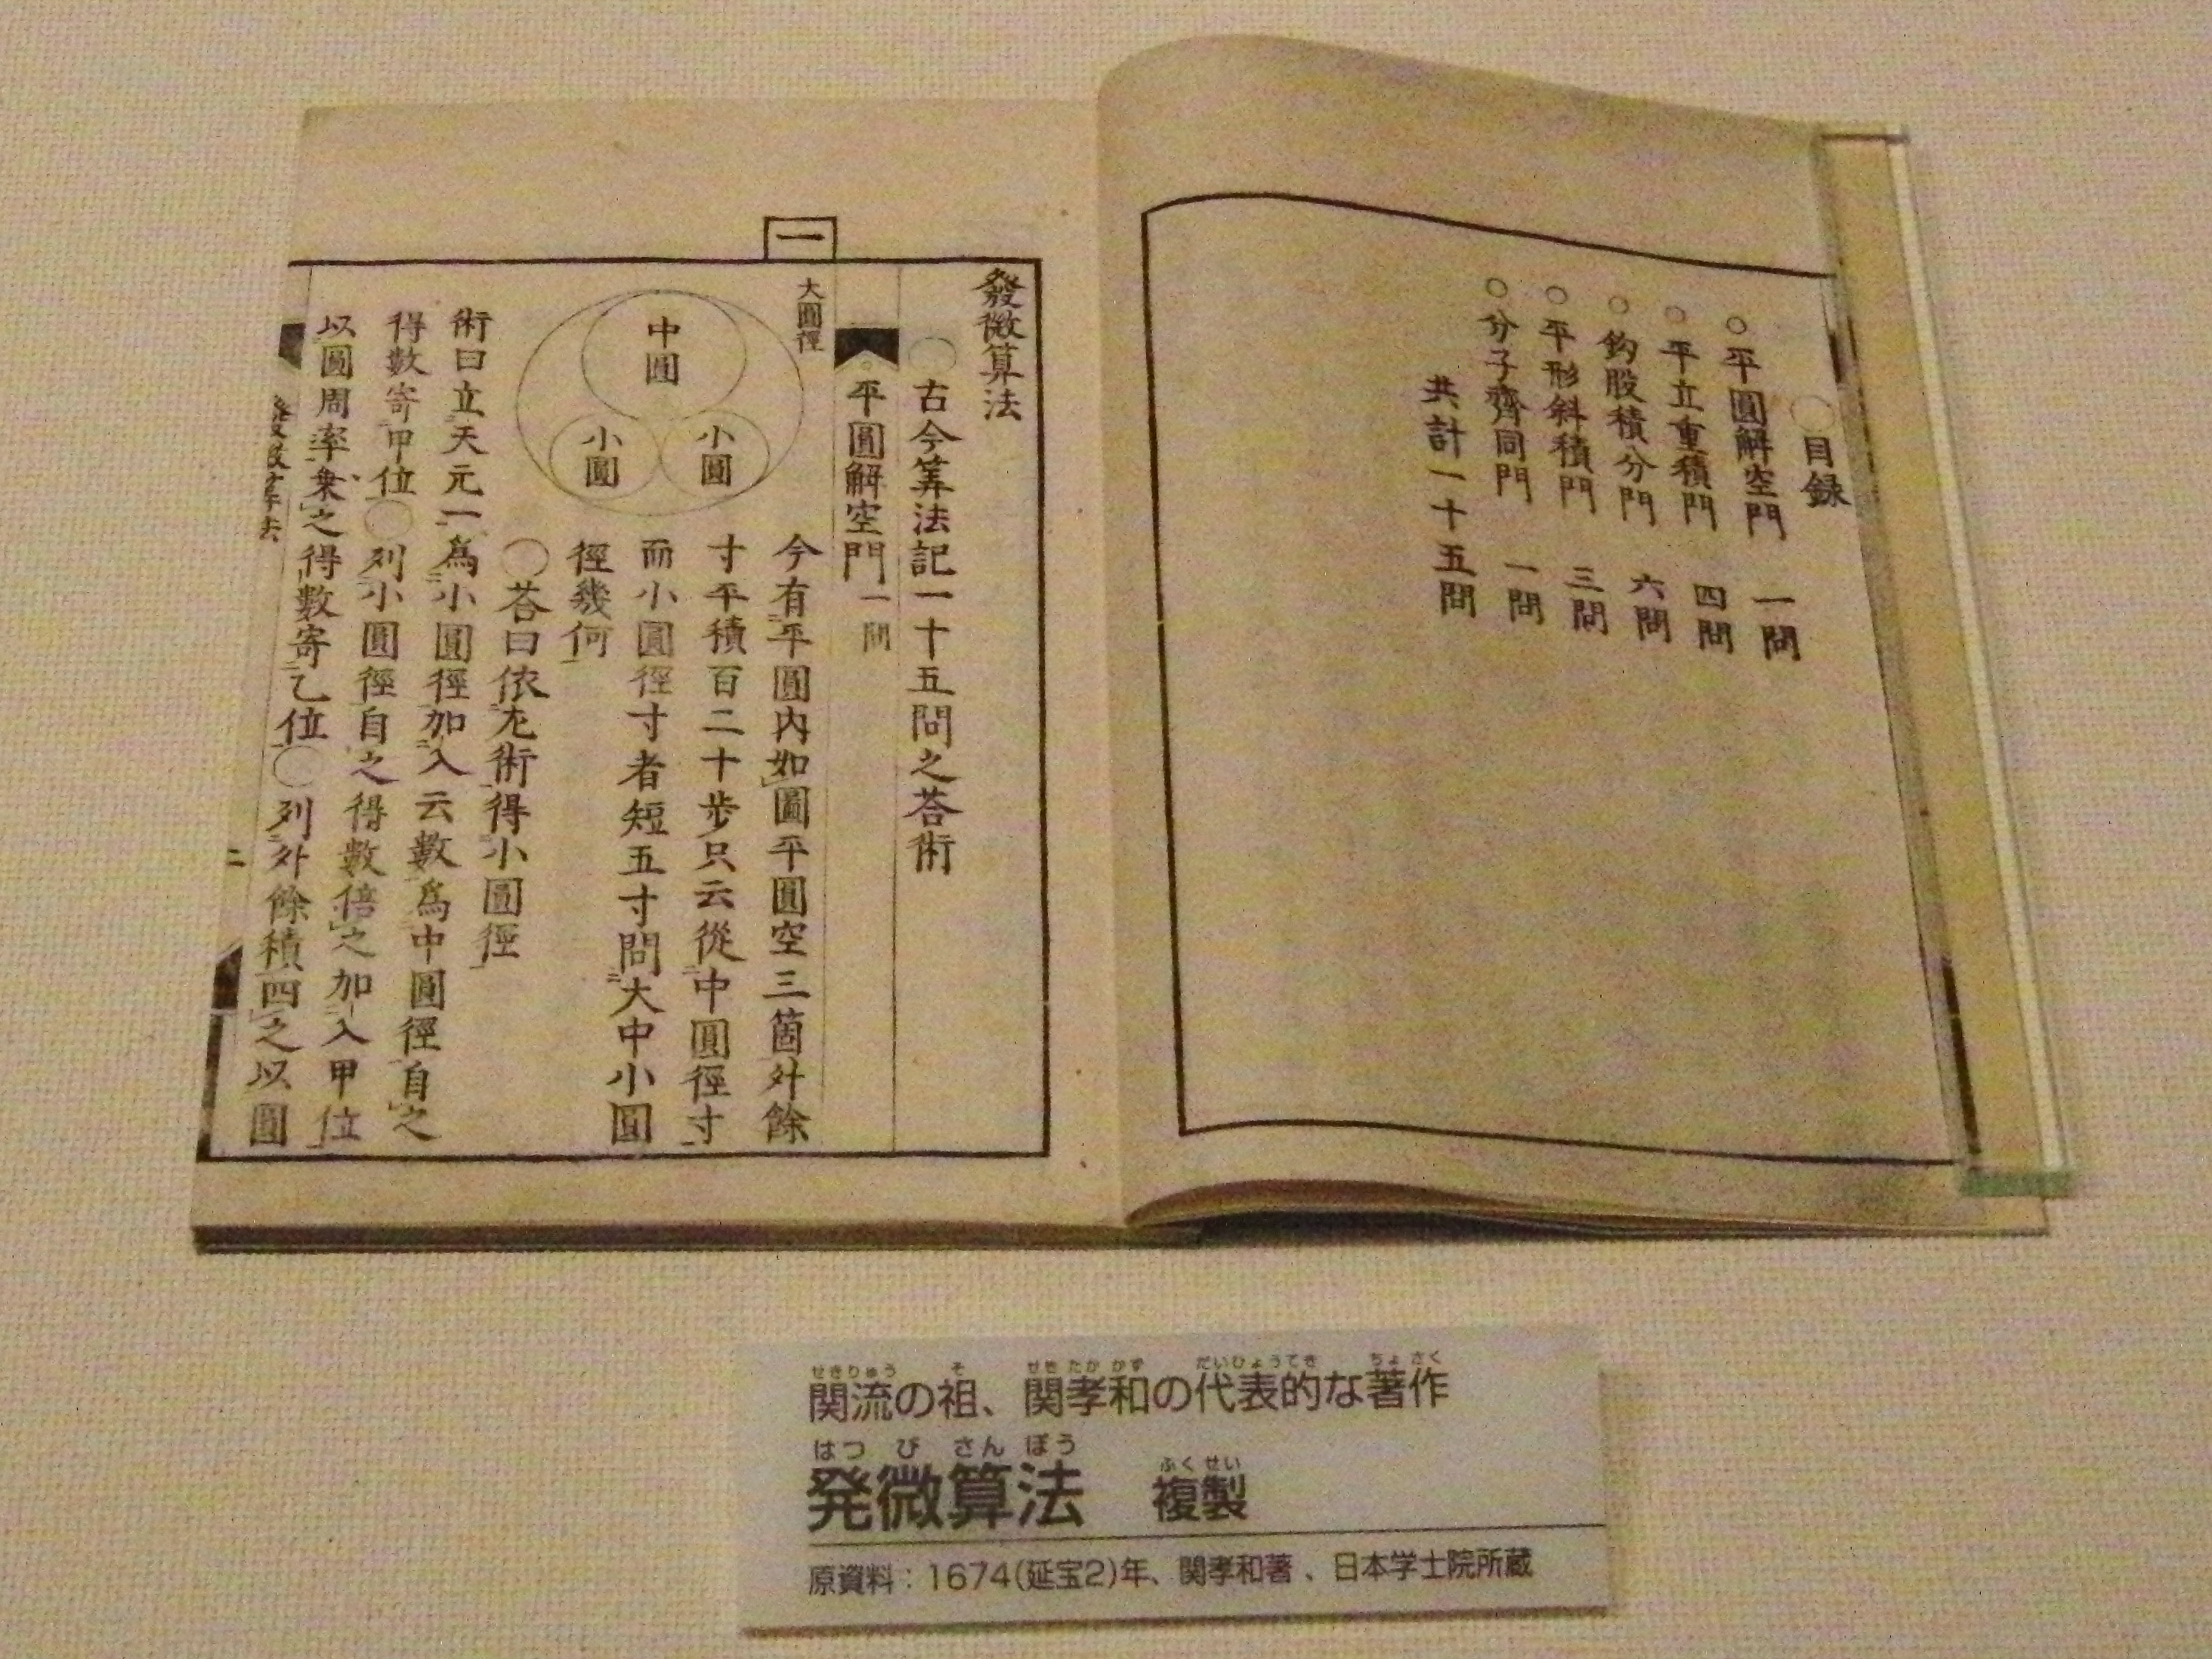 ○目録
○平圓解空門 一問
○平立重積門 四問
○鈎股積分門 六問
○平形斜積門 三問
○分子齊同門 一問
共計一十五問
發微算法
○古今筭法記一十五問之荅術
平圓解空門一問
一
大圓徑
中圓
小圓
小圓
今有平圓内如圖平圓空三箇外餘
寸平積百二十歩只云從中圓徑寸
而小圓徑寸者短五寸問大中小圓
徑幾何
○荅曰依左術得小圓徑
術曰立天元一爲小圓徑加入云數爲中圓徑自之
得數寄甲位○列小圓徑自之得數倍之加入甲位
以圓周率乗之得數寄乙位○列外餘積四之以圓
二
関流の祖、関孝和の代表的な著作
せきりゅう そ せき たか かず だいひょうてき ちょ さく
発微算法 複製
はつ び さん ぽう ふく せい
原資料：1674(延宝2)年、関孝和著、日本学士院所蔵